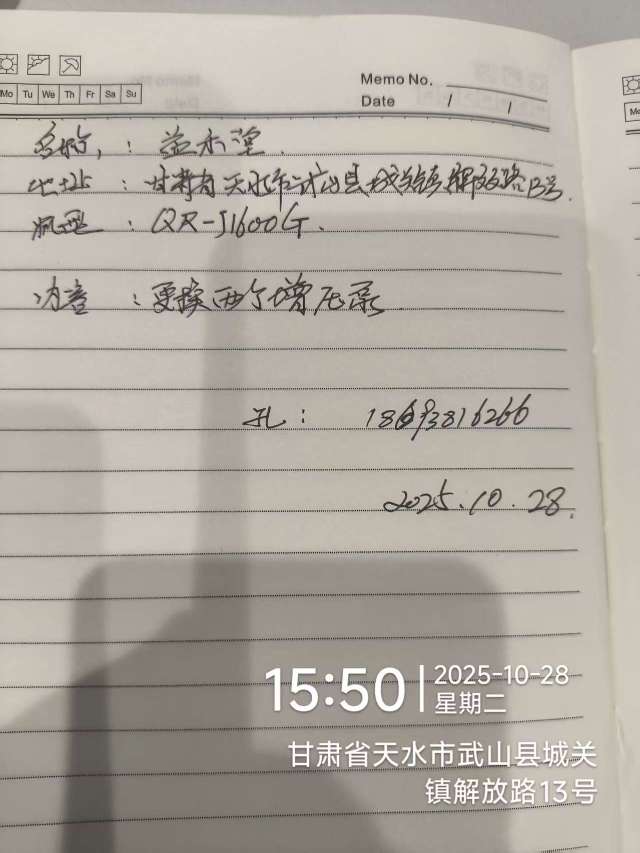 Memo No.
Mo Tu We Th Fr Sa Su
Date / /
名称：益禾堂.
地址：甘肃省天水市武山县城关镇解放路13号.
机型：QR-J1600G.
内容：更换两个增压泵
孔：18693816266
2025.10.28.
15:50
2025-10-28
星期二
甘肃省天水市武山县城关
镇解放路13号